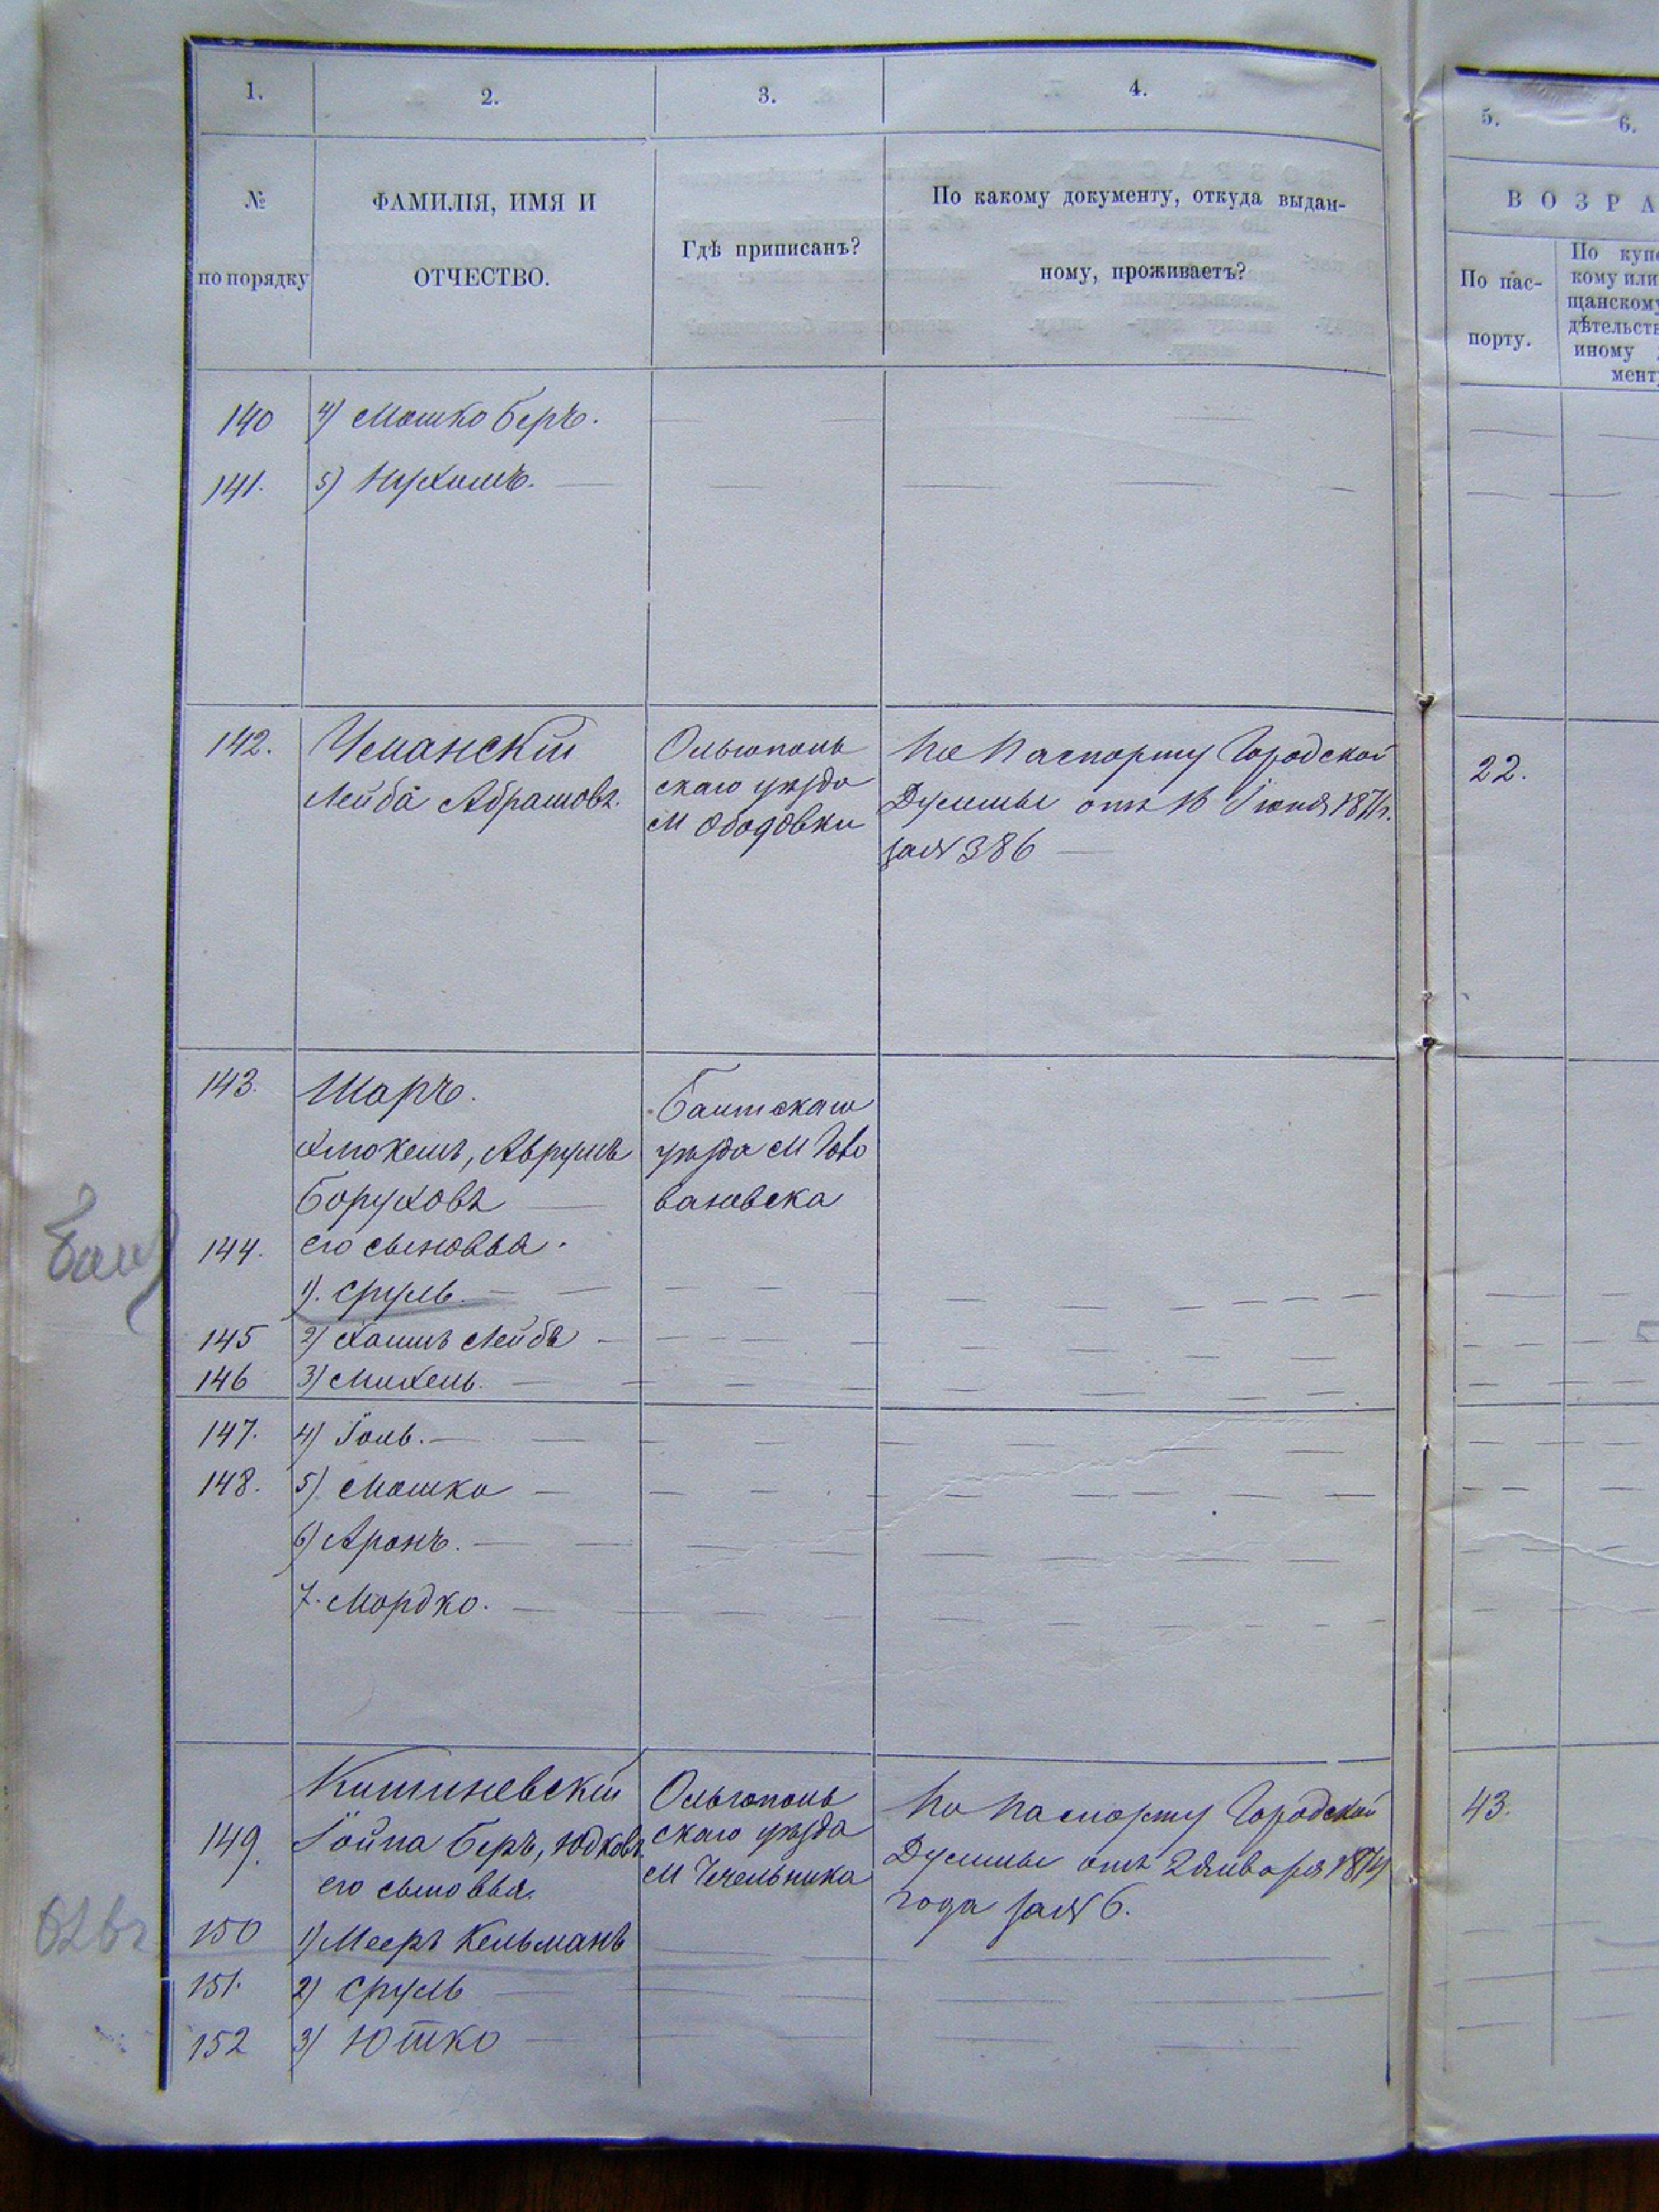 1. 2. 3. 4. 5. 6.
№ по порядку
ФАМИЛІЯ, ИМЯ И
ОТЧЕСТВО.
Гдѣ приписанъ?
По какому документу, откуда выдан-
ному, проживаетъ?
ВОЗРА
По пас-
порту.
По купе
кому или
щанскому
дѣтельств
иному
мент
140 4) Мошко Беръ.
141. 5) Нухимъ.
142. Чеманскій Ольгополь По Паспорту Городской 22.
Лейба Абрамовъ. скаго уѣзда Думмы отъ 16 Іюня 1871г.
М Ободовки за № 386
143. Шоръ. Балтскаго
Аврумъ уѣзда М Голо
Боруховъ ваневска
144. его сыновья.
1). Сруль.
145 2) Хаимъ Лейба
146 3) Михель.
147. 4) Іоль.
148. 5) Мошко
6) Аронъ.
7. Мордко.
Кишиневскій Ольгополь По паспорту Городской 43.
149. Іойна Беръ, Юдковъ. скаго уѣзда Думмы отъ 2 Января 1874
его сыновья. М Чечельника года за № 6.
150 1) Мееръ Кельманъ
151. 2) Сруль
152 3) Ютко